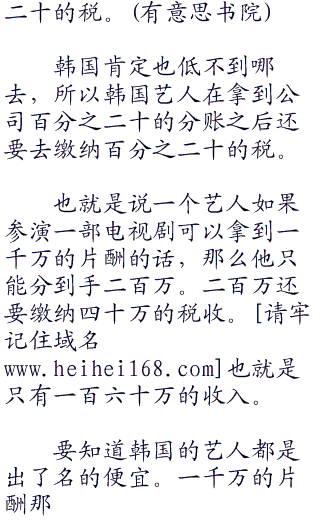 二十的税。(有意思书院)
韩国肯定也低不到哪
去，所以韩国艺人在拿到公
司百分之二十的分账之后还
要去缴纳百分之二十的税。
也就是说一个艺人如果
参演一部电视剧可以拿到一
千万的片酬的话，那么他只
能分到手二百万。二百万还
要缴纳四十万的税收。[请牢
记住域名
www.heihei168.com]也就是
只有一百六十万的收入。
要知道韩国的艺人都是
出了名的便宜。一千万的片
酬那